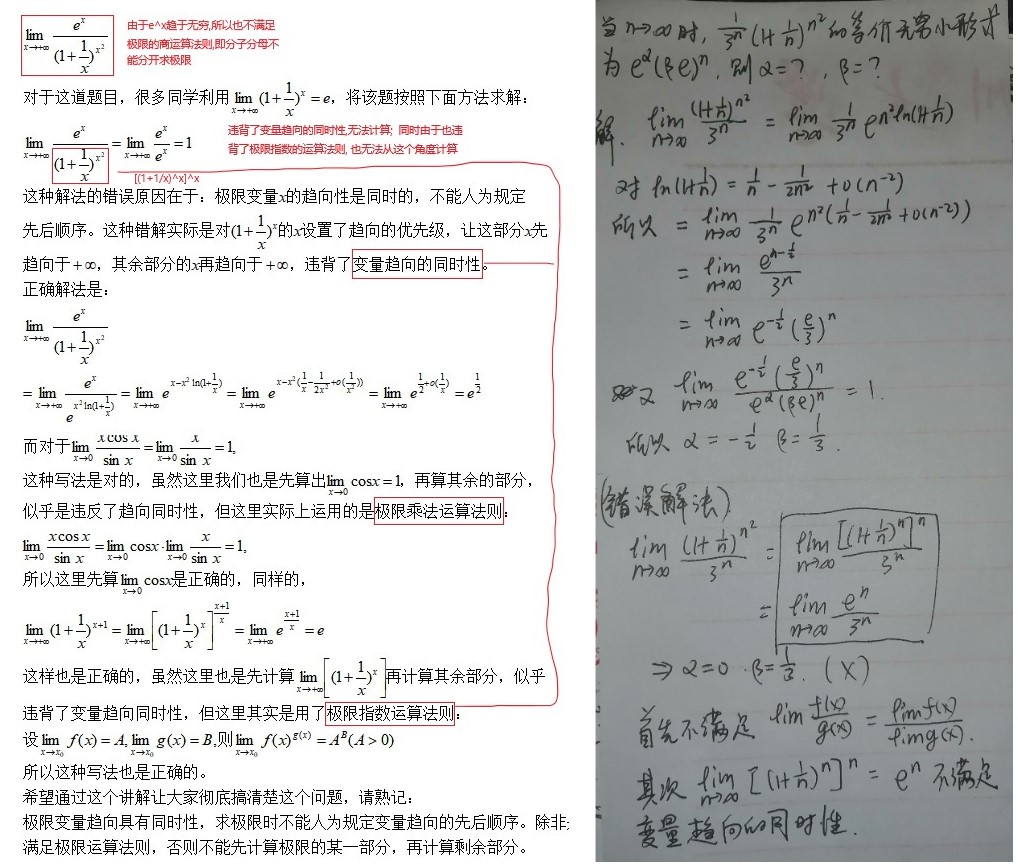 lim x→+∞ e^x / (1+1/x)^{x²}
由于e^x趋于无穷,所以也不满足
极限的商运算法则,即分子分母不
能分开求极限
对于这道题目，很多同学利用 lim x→+∞ (1+1/x)^x = e，将该题按照下面方法求解：
lim x→+∞ e^x / (1+1/x)^{x²} = lim x→+∞ e^x / e^x = 1
违背了变量趋向的同时性,无法计算; 同时由于也违
背了极限指数的运算法则, 也无法从这个角度计算
[(1+1/x)^x]^x
这种解法的错误原因在于：极限变量x的趋向性是同时的，不能人为规定
先后顺序。这种错解实际是对(1+1/x)^x的x设置了趋向的优先级，让这部分x先
趋向于+∞，其余部分的x再趋向于+∞，违背了变量趋向的同时性。
正确解法是：
lim x→+∞ e^x / (1+1/x)^{x²}
= lim x→+∞ e^x / e^{x² ln(1+1/x)} = lim x→+∞ e^{x-x² ln(1+1/x)} = lim x→+∞ e^{x-x²(1/x-1/2x²+o(1/x²))} = lim x→+∞ e^{1/2+o(1/x)} = e^{1/2}
而对于 lim x→0 xcosx / sin x = lim x→0 x / sin x = 1,
这种写法是对的，虽然这里我们也是先算出 lim x→0 cosx = 1，再算其余的部分，
似乎是违反了趋向同时性，但这里实际上运用的是极限乘法运算法则：
lim x→0 xcosx / sin x = lim x→0 cosx · lim x→0 x / sin x = 1,
所以这里先算 lim x→0 cosx是正确的，同样的，
lim x→+∞ (1+1/x)^{x+1} = lim x→+∞ [(1+1/x)^x]^{(x+1)/x} = lim x→+∞ e^{(x+1)/x} = e
这样也是正确的，虽然这里也是先计算 lim x→+∞ [(1+1/x)^x] 再计算其余部分，似乎
违背了变量趋向同时性，但这里其实是用了极限指数运算法则：
设 lim x→x₀ f(x) = A, lim x→x₀ g(x) = B,则 lim x→x₀ f(x)^{g(x)} = A^B (A>0)
所以这种写法也是正确的。
希望通过这个讲解让大家彻底搞清楚这个问题，请熟记：
极限变量趋向具有同时性，求极限时不能人为规定变量趋向的先后顺序。除非;
满足极限运算法则，否则不能先计算极限的某一部分，再计算剩余部分。
当 n→∞ 时, 1/3^n (1+1/n)^{n²} 的等价无穷小形式
为 e^α (βe)^n, 则 α=? , β=?
解. lim n→∞ (1+1/n)^{n²} / 3^n = lim n→∞ 1/3^n e^{n² ln(1+1/n)}
对 ln(1+1/n) = 1/n - 1/2n² + o(n^{-2})
所以 = lim n→∞ 1/3^n e^{n²(1/n - 1/2n² + o(n^{-2}))}
= lim n→∞ e^{n-1/2} / 3^n
= lim n→∞ e^{-1/2} (e/3)^n
又 lim n→∞ e^{-1/2} (e/3)^n / e^α (βe)^n = 1.
所以 α = -1/2 β = 1/3.
(错误解法)
lim n→∞ (1+1/n)^{n²} / 3^n = lim n→∞ [(1+1/n)^n]^n / 3^n
= lim n→∞ e^n / 3^n
⇒ α=0 · β=1/3. (×)
首先不满足 lim f(x)/g(x) = lim f(x) / lim g(x).
其次 lim n→∞ [(1+1/n)^n]^n = e^n 不满足
变量趋向的同时性.